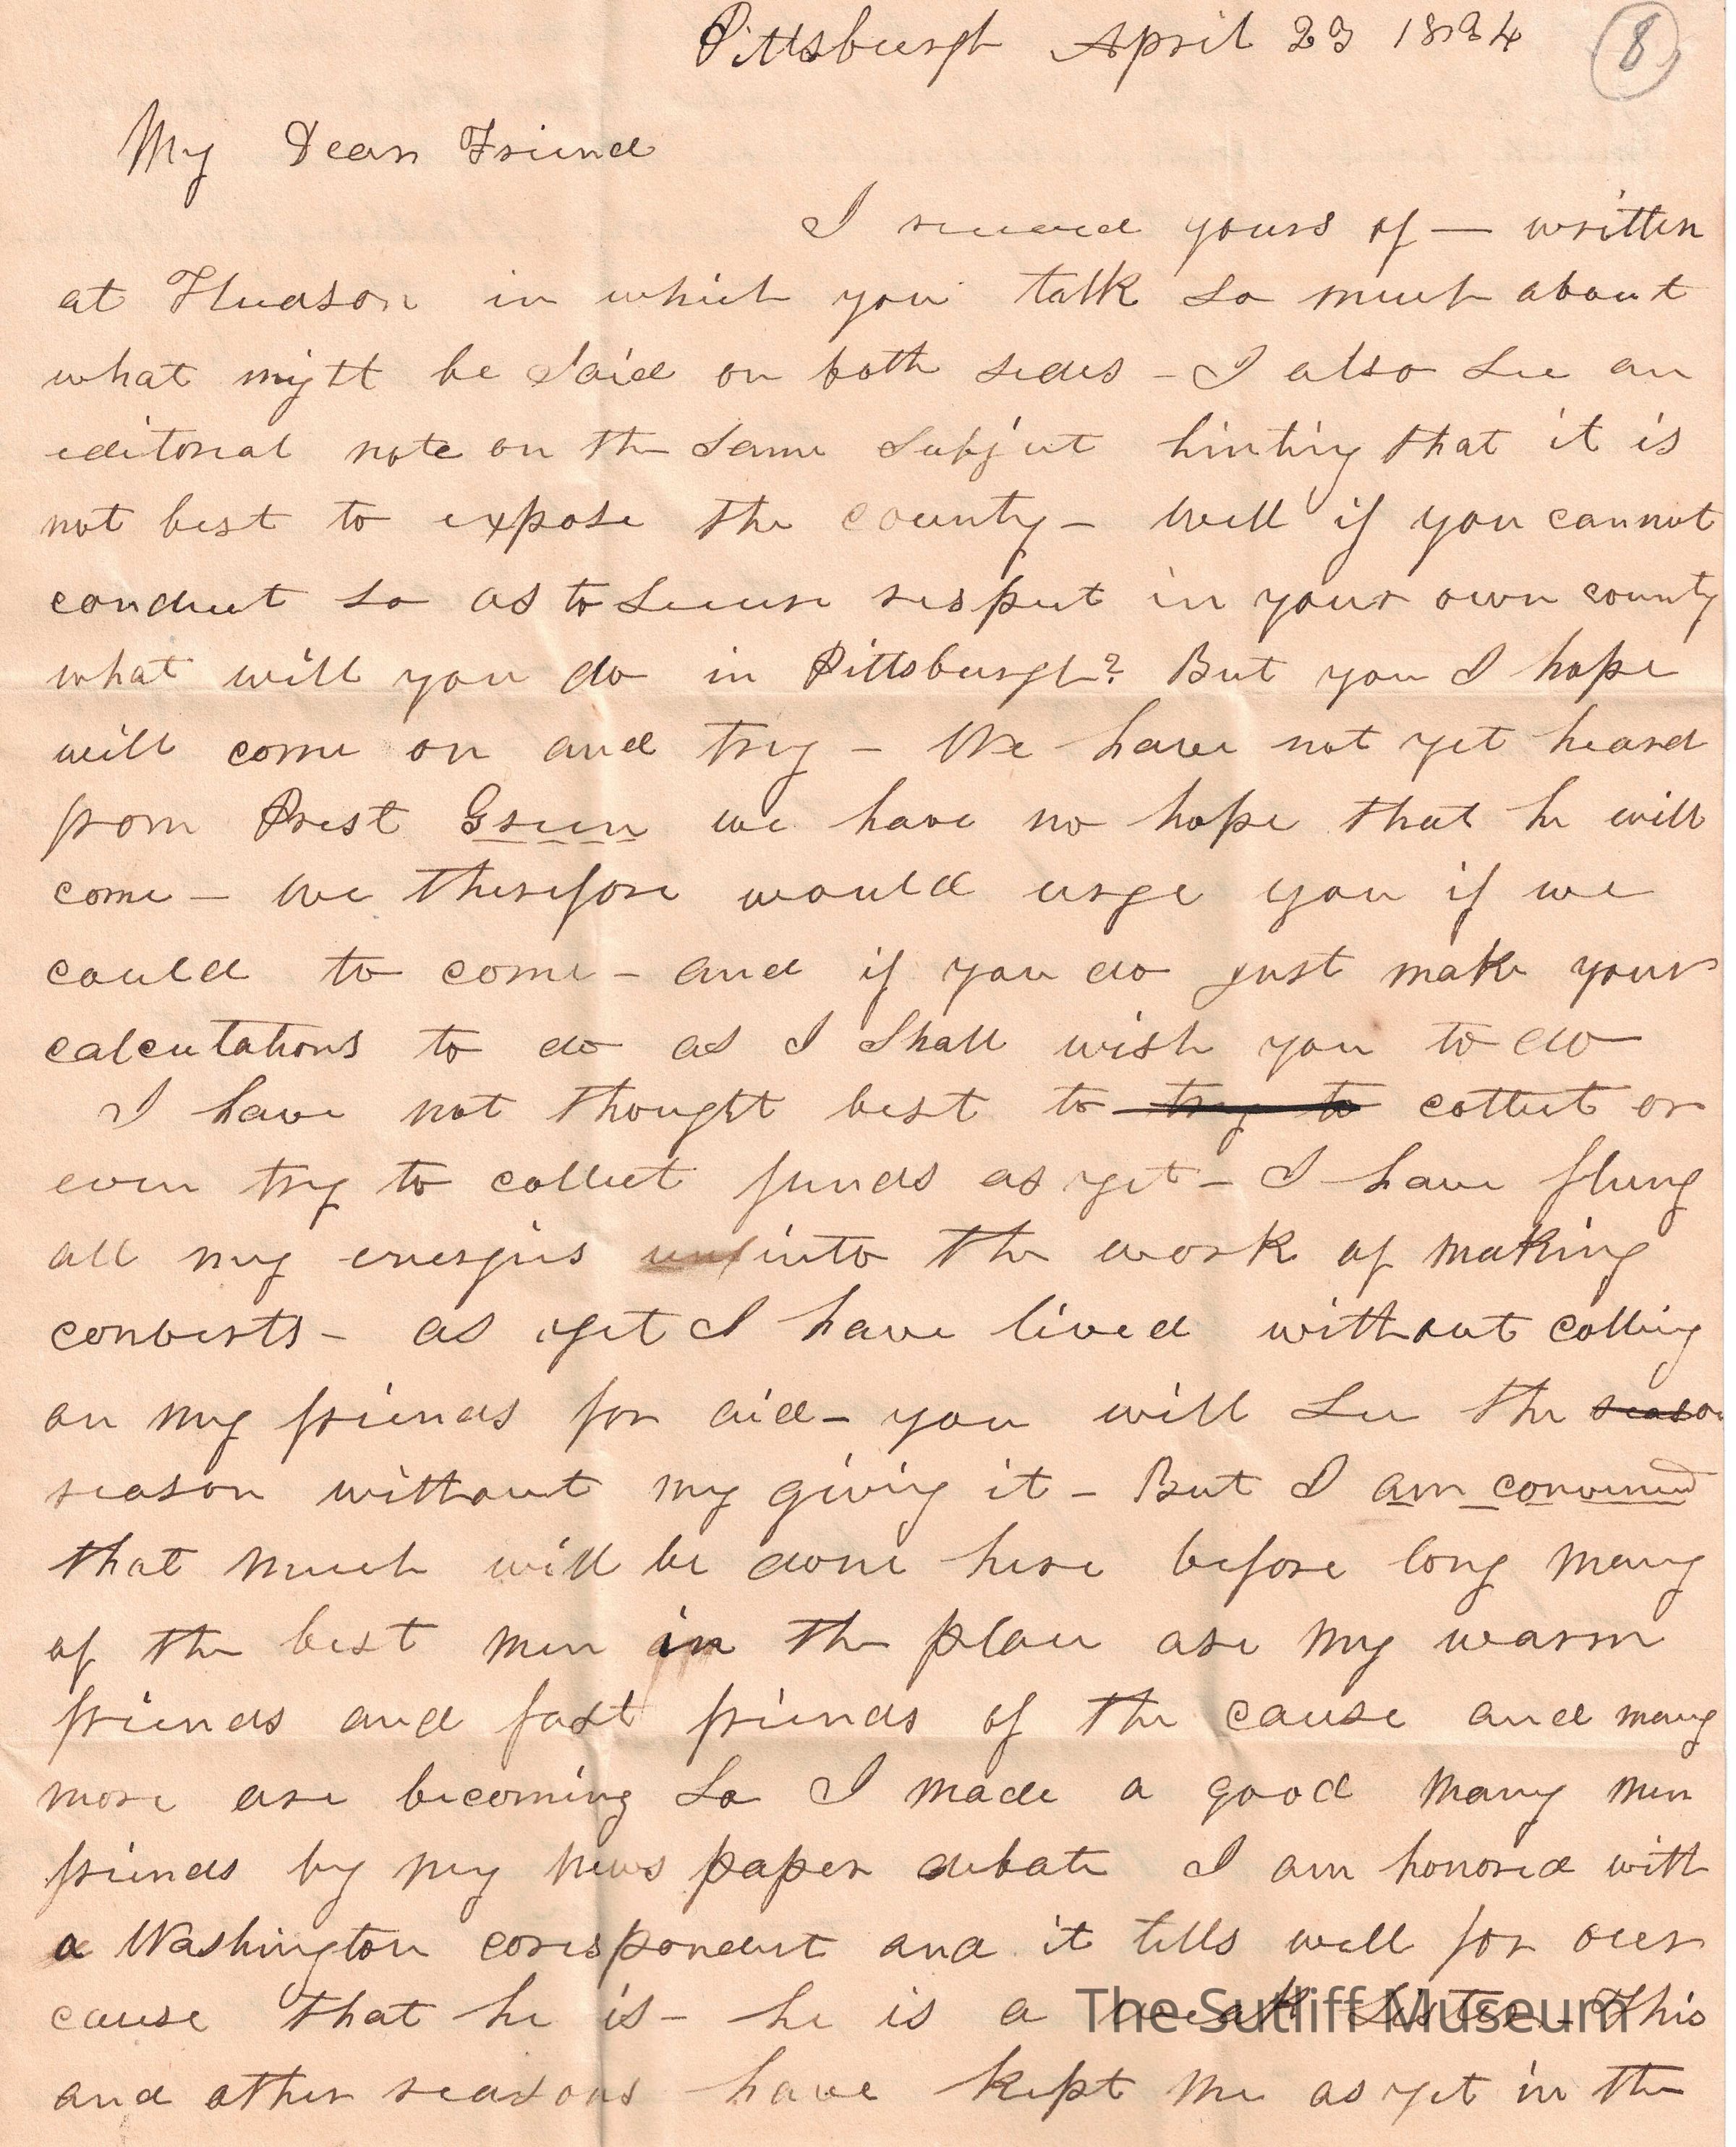 Pittsburgh April 23 1834
8
My Dear Friend
I received yours of — written
at Hudson in which you talk so much about
what might be said on both sides - I also see an
editorial note on the same subject hinting that it is
not best to expose the county - Well if you cannot
conduct so as to secure respect in your own county
what will you do in Pittsburgh? But you I hope
will come on and try - We have not yet heard
from Prest Green we have no hope that he will
come - We therefore would urge you if we
could to come - and if you do just make your
calculations to do as I shall wish you to do
I have not thought best to try to collect or
even try to collect funds as yet - I have flung
all my energies into the work of making
converts - as yet I have lived without calling
on my friends for aid - you will see the reason
reason without my giving it - But I am convinced
that much will be done here before long many
of the best men in the place are my warm
friends and fast friends of the cause and many
more are becoming so I made a good many men
friends by my news paper debate I am honored with
a Washington correspondent and it tells well for our
cause that he is - he is a weak sister - This
and other reasons have kept me as yet in the
The Sutliff Museum